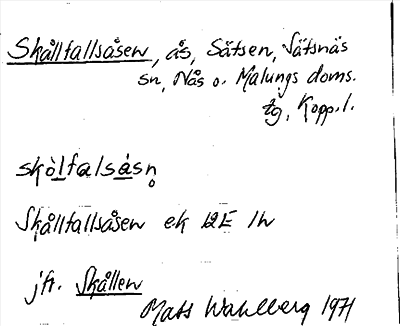 Skållfallsåsen, ås, Sätsen, Jätsnäs
sn, Nås o. Malungs doms.
tg, Kopp. l.
skòlfalsåsn̥
Skållfallsåsen ek 12E 1h
jfr. Skållen
Mats Wahlberg 1971